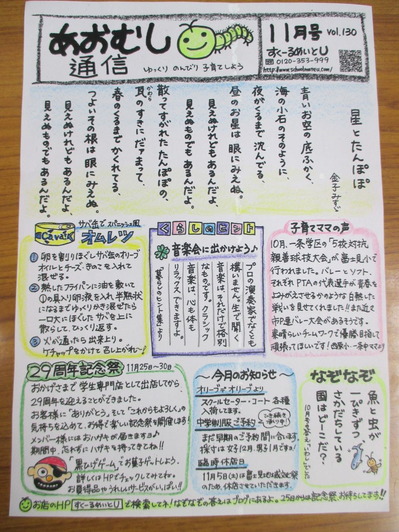 あおむし
通信
ゆっくり のんびり 子育てしよう
11月号 vol.130
すくーるめいとU
0120-353-999
星とたんぽぽ
金子みすゞ
青いお空の底ふかく、
海の小石のそのように、
夜がくるまで沈んでる、
昼のお星は眼にみえぬ。
見えぬけれどもあるんだよ、
見えぬものでもあるんだよ。
散ってすがれたたんぽぽの、
瓦のすきに、だァまって、
春のくるまでかくれてる、
つよいその根は眼にみえぬ。
見えぬけれどもあるんだよ、
見えぬものでもあるんだよ。
サバ缶でスパニッシュ風
オムレツ
① 卵を割りほぐしサバ缶のオリーブ
オイルとチーズ・きのこを入れて
混ぜる。
② 熱したフライパンに油を敷いて
①の具入り卵液を入れ半熟状
になるまでゆっくりかき混ぜたら
一口大にほぐしたサバを上に
散らして、ひっくり返す。
③ 火が通ったら出来上り。
ケチャップをかけて召し上がれ〜!
くらしのヒント
音楽会に出かけよう♪
プロの演奏家でなくても
構いません。生で聞く
音楽は、それだけで格別
なものです。クラシック
音楽は、心も体も
リラックスできますよ。
「暮らしのヒント集」より
子育てママの声
10月、一条学区の「5校対抗
親善球技大会」が富士見小で
行われました。バレーとソフト、
それぞれPTAの代表選手が音楽を
29周年記念祭 11月25日〜30日
おかげさまで学生専門店として出店してから
29周年を迎えることができました。
お客様に「ありがとう。そして「これからもよろしく」の
気持ちを込めて、お得で楽しい記念祭を開催します!
メンバー様にはおハガキが届きます♪
期間中、忘れずにハガキを持ってきてね!!
黒ひげゲームでお菓子ゲットしよう。
詳しくはHPでチェックしてみてね。
〜今月のお知らせ〜
スクールセーター・コート 各種
入荷してます。
中学制服ご予約
まだ早期のご予約間に合います。
臨時休店日
なぞなぞ
魚と虫が
一ぴきずつ
さかだちしている
国はどーこだ?
お店のHP すくーるめいとU で検索してネ!なぞなぞの答えはブログにあるよ。25日からは記念祭、お待ちしてます!!